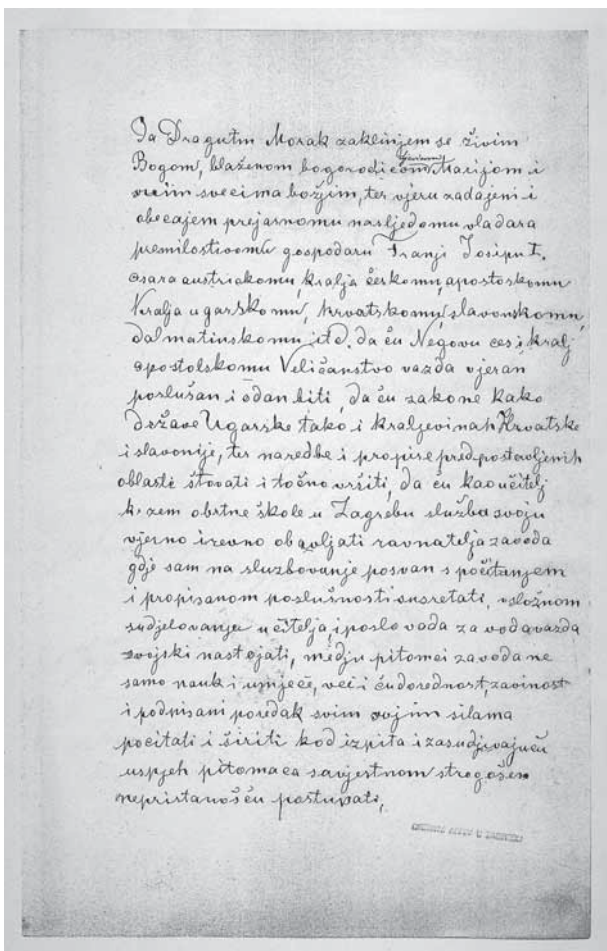 Ja Dragutin Morak zaklinjem se živim
Bogom, blaženom bogorodicom Marijom i
svim svecima božjim, ter vjeru zadajem i
obećajem prejasnomu nasljednomu vladara
premilostivomu gospodaru Franji Josipu I.
cesara austriakomu, kralja češkomu, apostoskomu
Kralja ugarskomu, hrvatskomu, slavonskomu,
dalmatinskomu itd. da ću Negovu ces i kralj
apostolskomu Veličanstvo vazda vjeran
poslušan i odan biti, da ću zakone kako
države Ugarske tako i kraljevinah Hrvatske
i slavonije, ter naredbe i propise predpostavljenih
oblasti štovati i točno vršiti, da ću kao učitelj
kr. zem obrtne škole u Zagrebu službu svoju
vjerno i revno obavljati ravnatelja zavoda
gdje sam na službovanje pozvan s počitanjem
i propisanom poslušnosti susretati, u složnom
sudjelovanju učitelja, i poslovođa zavoda vazda
svojski nastojati, medju pitomci zavoda ne
samo nauk i umjeće, već i ćudorednost,
i podpisani poredak svim svojim silama
pocitati i širiti kod izpita i zasudjivajući
uspjeh pitomaca savjestnom strogošću
nepristanošću postupati,